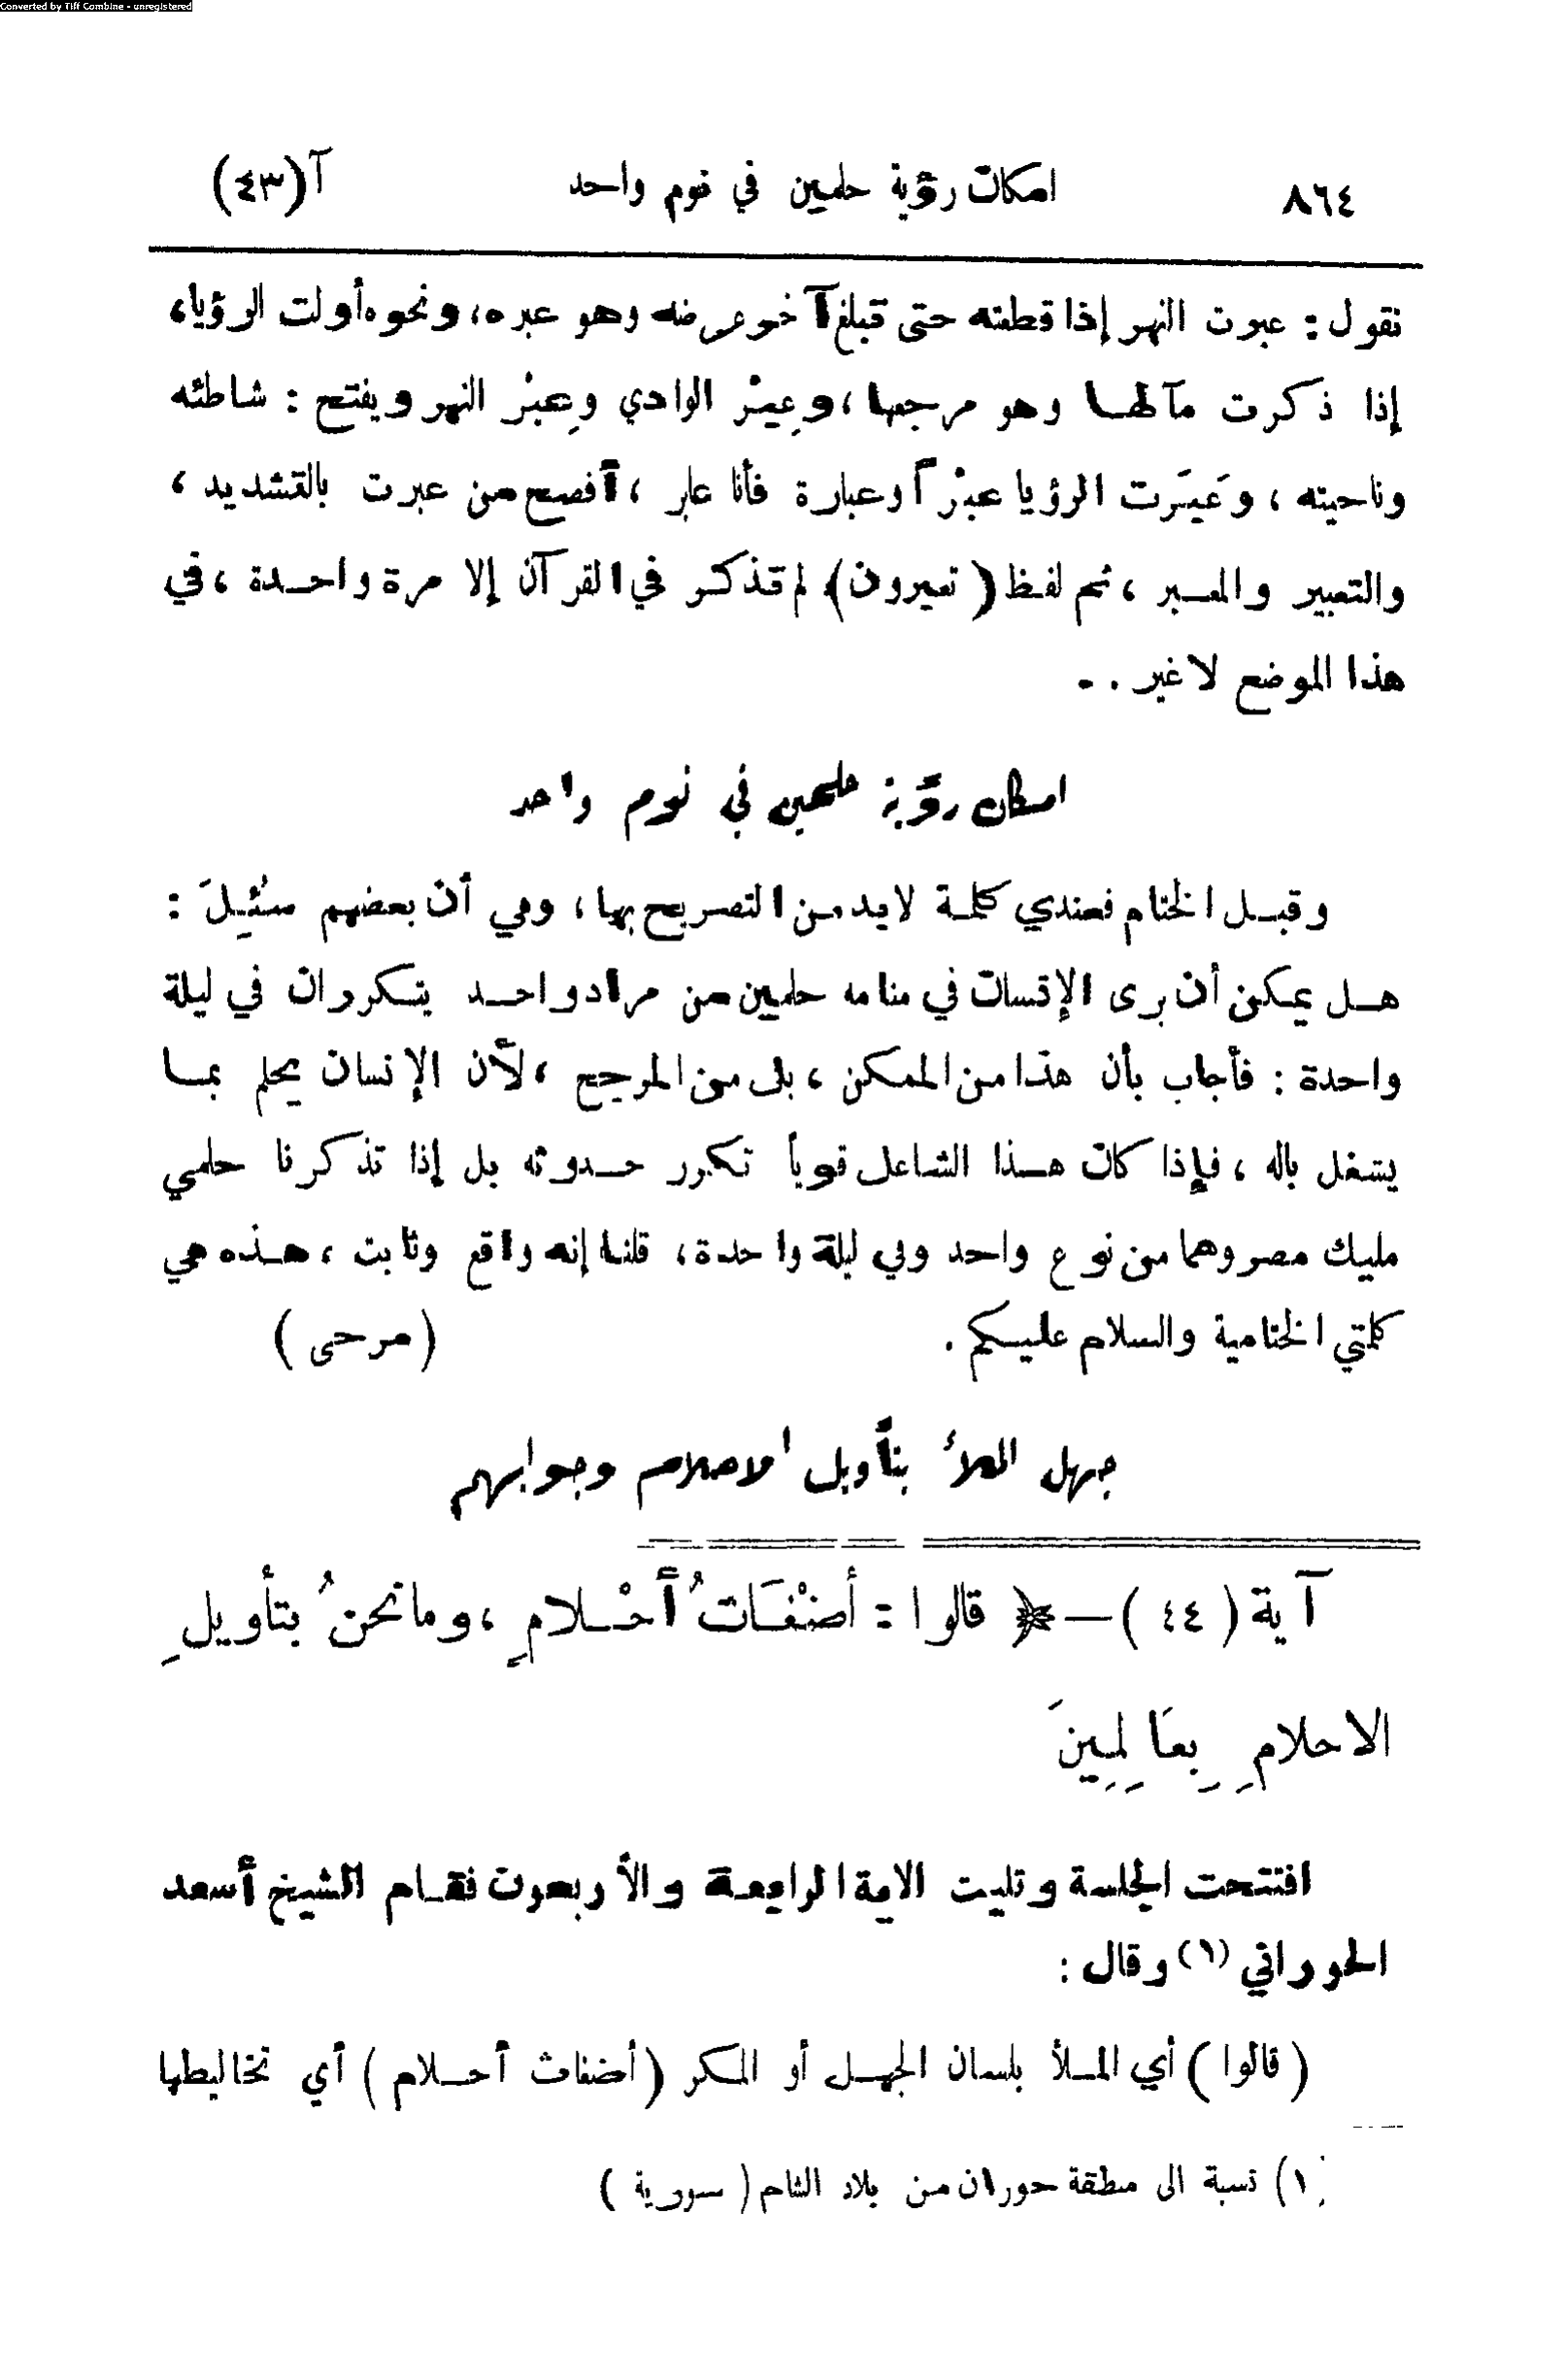 Converted by Tiff Combine - unregistered
٨٦٤ امكان رؤية حلمين في نوم واحد آ(٤٣)
نقول : عبرت النهر إذا قطعته حتى تبلغ آخر عرضه وهو عبره، ونحوه أولت الرؤيا،
إذا ذكرت مآلهـا وهو مرجعها ، وعِبْر الوادي وعِبْر النهر ويفتح : شاطئه
وناحيته ، وعَبَرت الرؤيا عبْراً وعبارة فأنا عابر ، أفصح من عبرت بالتشديد ،
والتعبير والمعـبر ، ثم لفـظ ( تعبرون ) لم تذكـر في القرآن إلا مرة واحـدة ، في
هذا الموضع لا غير . ـ
امكان رؤية حلمين في نوم واحد
وقبـل الختام فعندي كلمـة لابد مـن التصريح بها ، وهي أن بعضهم سُئِلَ :
هـل يمكن أن يرى الإنسان في منامه حلمين من مراد واحـد يتكرران في ليلة
واحدة : فأجاب بأن هذا من الممكن ، بل من المرجح ، لأن الإنسان يحلم بمـا
يشغل باله ، فإذا كان هـذا الشاغل قوياً تكرر حـدوثه بل إذا تذكرنا حلمي
مليك مصر وهما من نوع واحد وفي ليلة واحدة ، قلنـا إنه واقع وثابت ، هـذه هي
كلمتي الختامية والسلام عليـكم . (مرحى )
جهل الملأ بتأويل الاحلام وجوابهم
آية ( ٤٤ ) — قالوا : أضْغَـاثُ أحْـلامٍ ، وما نحنُ بتأويلِ
الاحلامِ بِعَالِمِينَ
افتتحت الجلسة وتليت الاية الرابعـة والأربعون فقـام الشيخ أسعد
الحوراني (١) وقال :
( قالوا ) أي المـلأ بلسان الجهـل أو المكر ( أضغاث أحـلام ) أي تخاليطها
(١) نسبة الى منطقة حوران من بلاد الشام ( سورية )